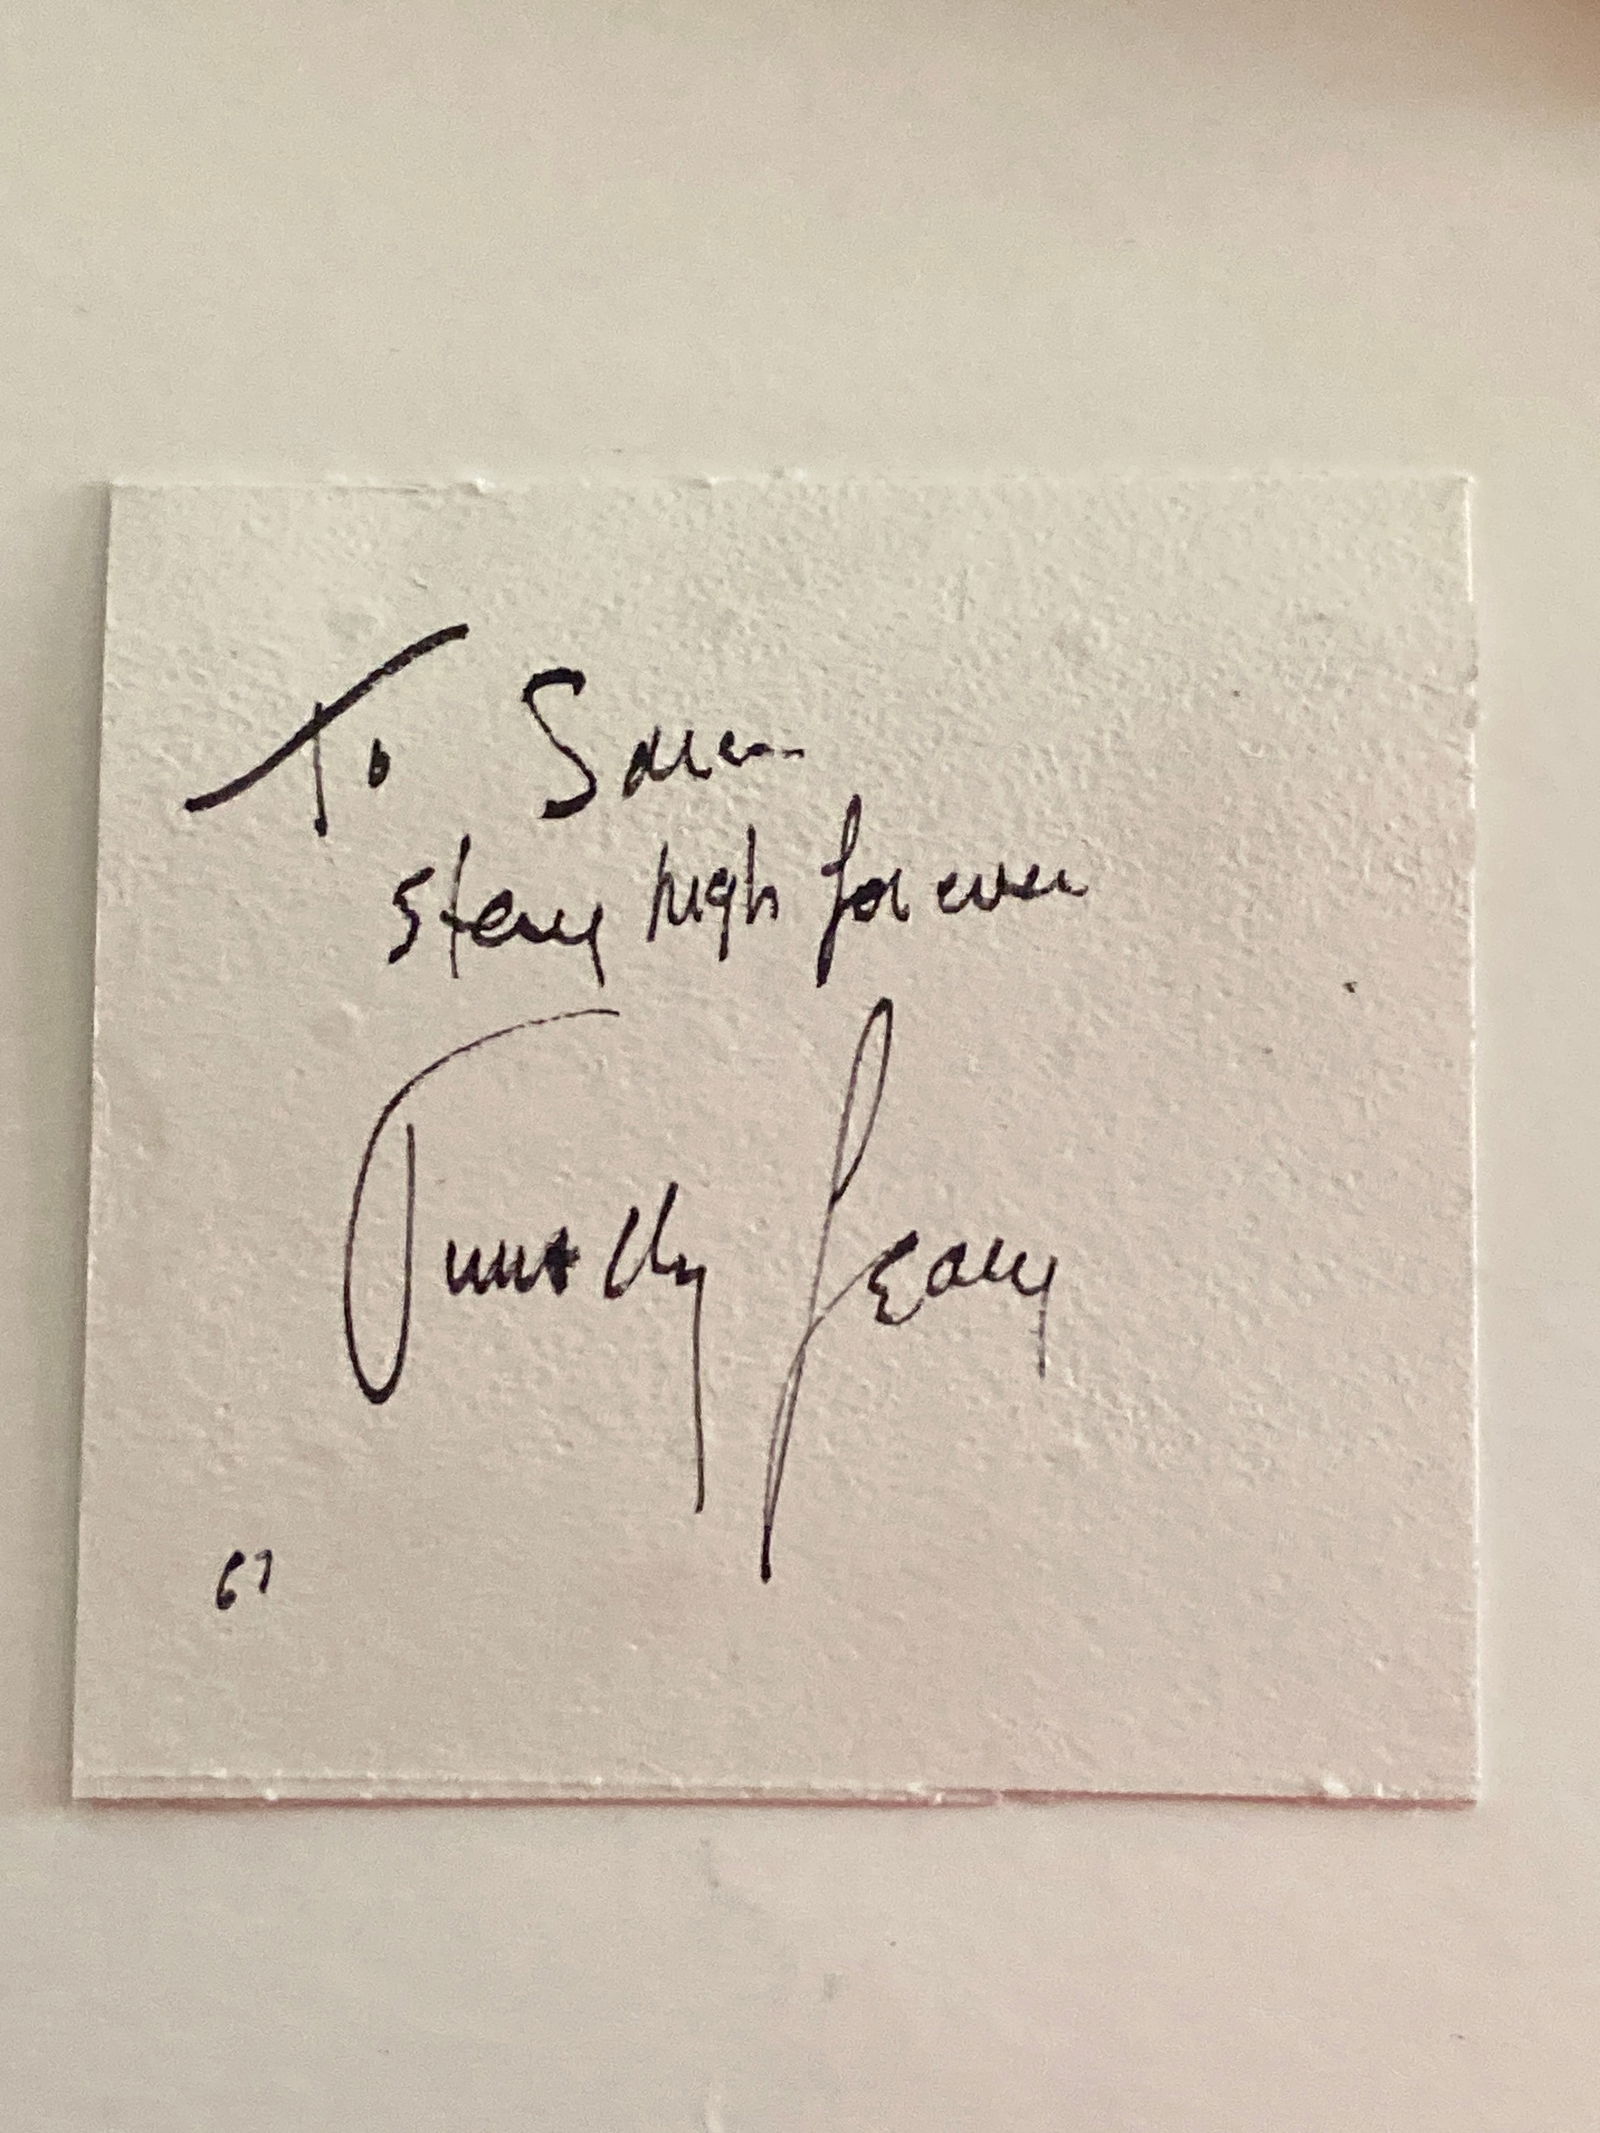 To
stay high forever
Timothy Leary
67